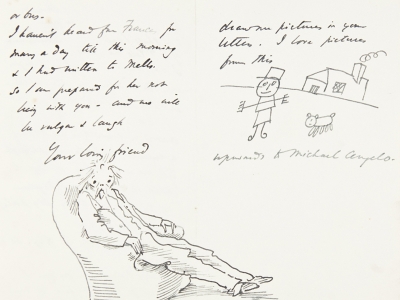 or bus.
I haven't heard from France for
many a day till this morning
& I had written to Mells.
So I am prepared for her not
being with you – and we will
be vulgar & laugh
Your lovg friend
draw me pictures in your
letters. I love pictures
from this
upwards to Michael Angelo.